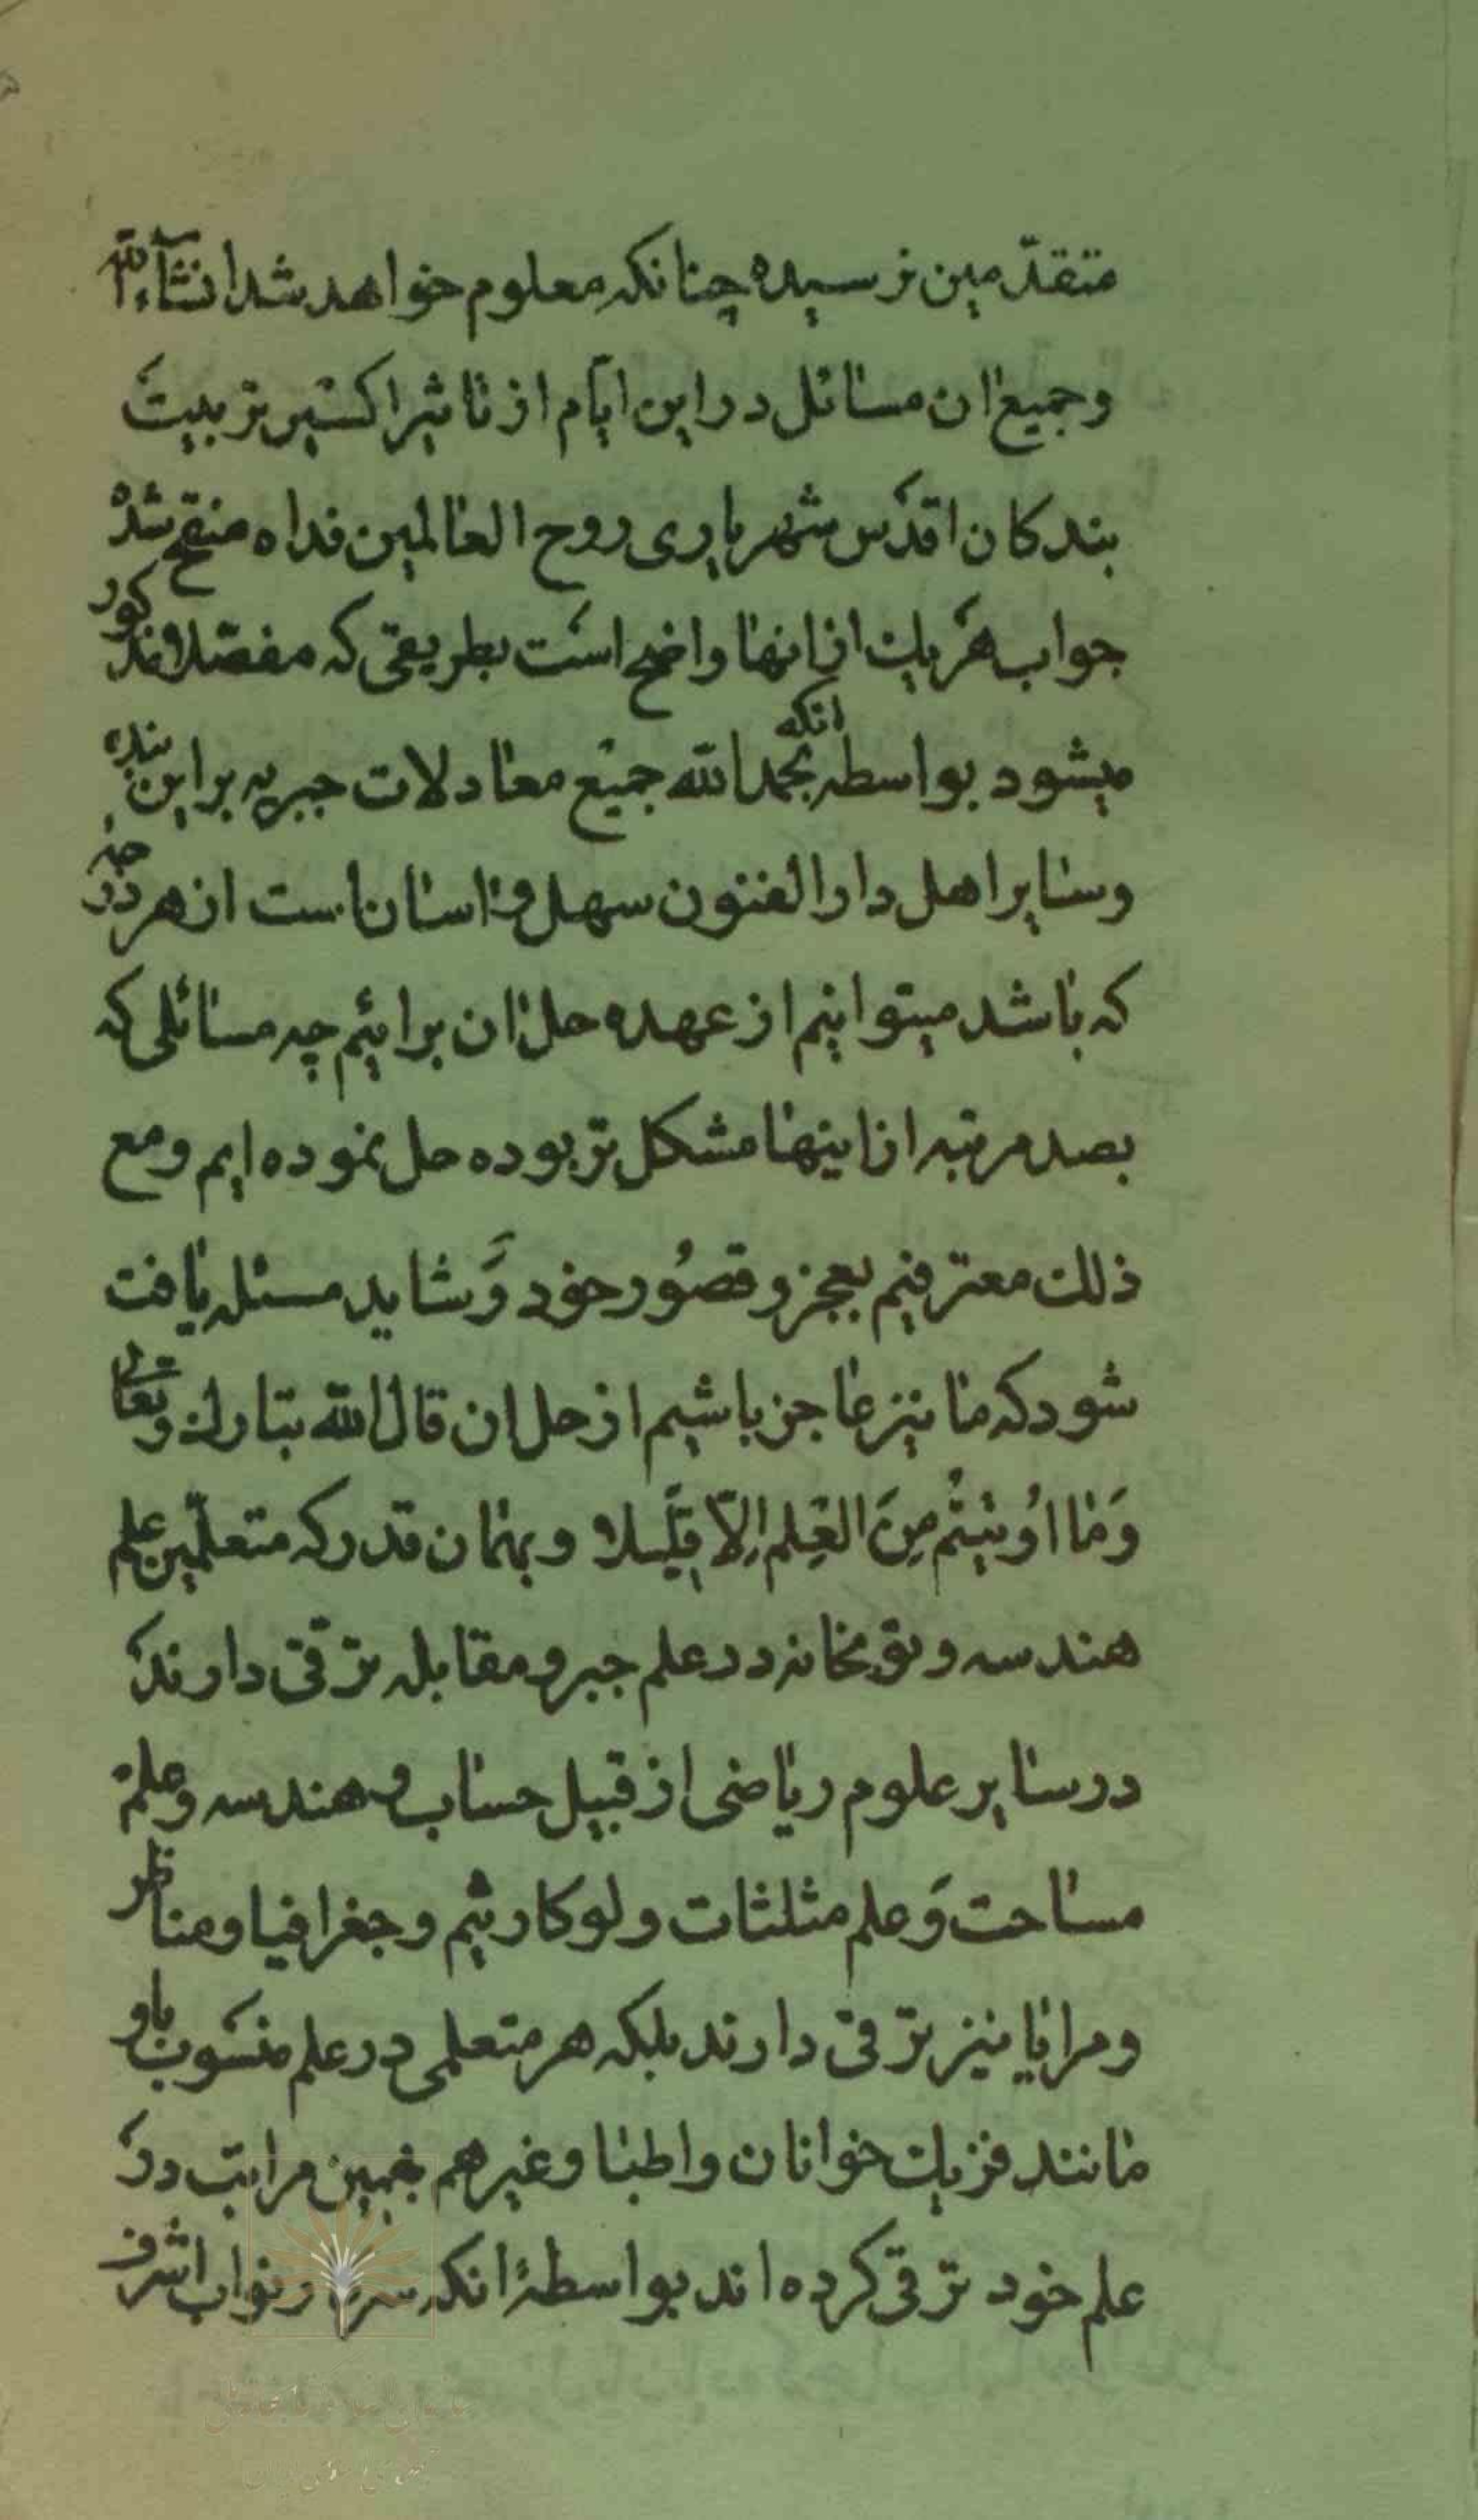 متقدّمین نرسیده چنانکه معلوم خواهد شد انشآءالله
و جمیع ان مسائل در این ایّام از تاثیر اکسیر تربیت
بندکان اقدس شهریاری روح العالمین فداه منقح شده
جواب هر یک از انها واضح است بطریقی که مفصّلا مذکور
میشود بواسطه انکه بحمدالله جمیع معادلات جبریه بر این بنده
و سایر اهل دارالفنون سهل و اسان است از هر درجه
که باشد میتوانیم از عهده حل ان برائیم چه مسائلی که
بصد مرتبه از اینها مشکل تر بوده حل نموده ایم و مع
ذلک معترفیم بعجز و قصُور خود وَ شاید مسئله یافت
شود که ما نیز عاجز باشیم از حل ان قال الله تبارک و تعالی
وَما اوُتیتُم مِنَ العِلم اِلاّ قَلیلا و بهمان قدر که متعلّمین علم
هندسه و توپخانه در علم جبر و مقابله ترقی دارند
در سایر علوم ریاضی از قبیل حساب و هندسه و علم
مساحت وَ علم مثلثات و لوکاریثم و جغرافیا و مناظر
و مرایا نیز ترقی دارند بلکه هر متعلمی در علم منسوب باو
مانند فزیک خوانان و اطبا و غیرهم بهمین مراتب در
علم خود ترقی کرده اند بواسطهٔ انکه سرکار نواب اشرف